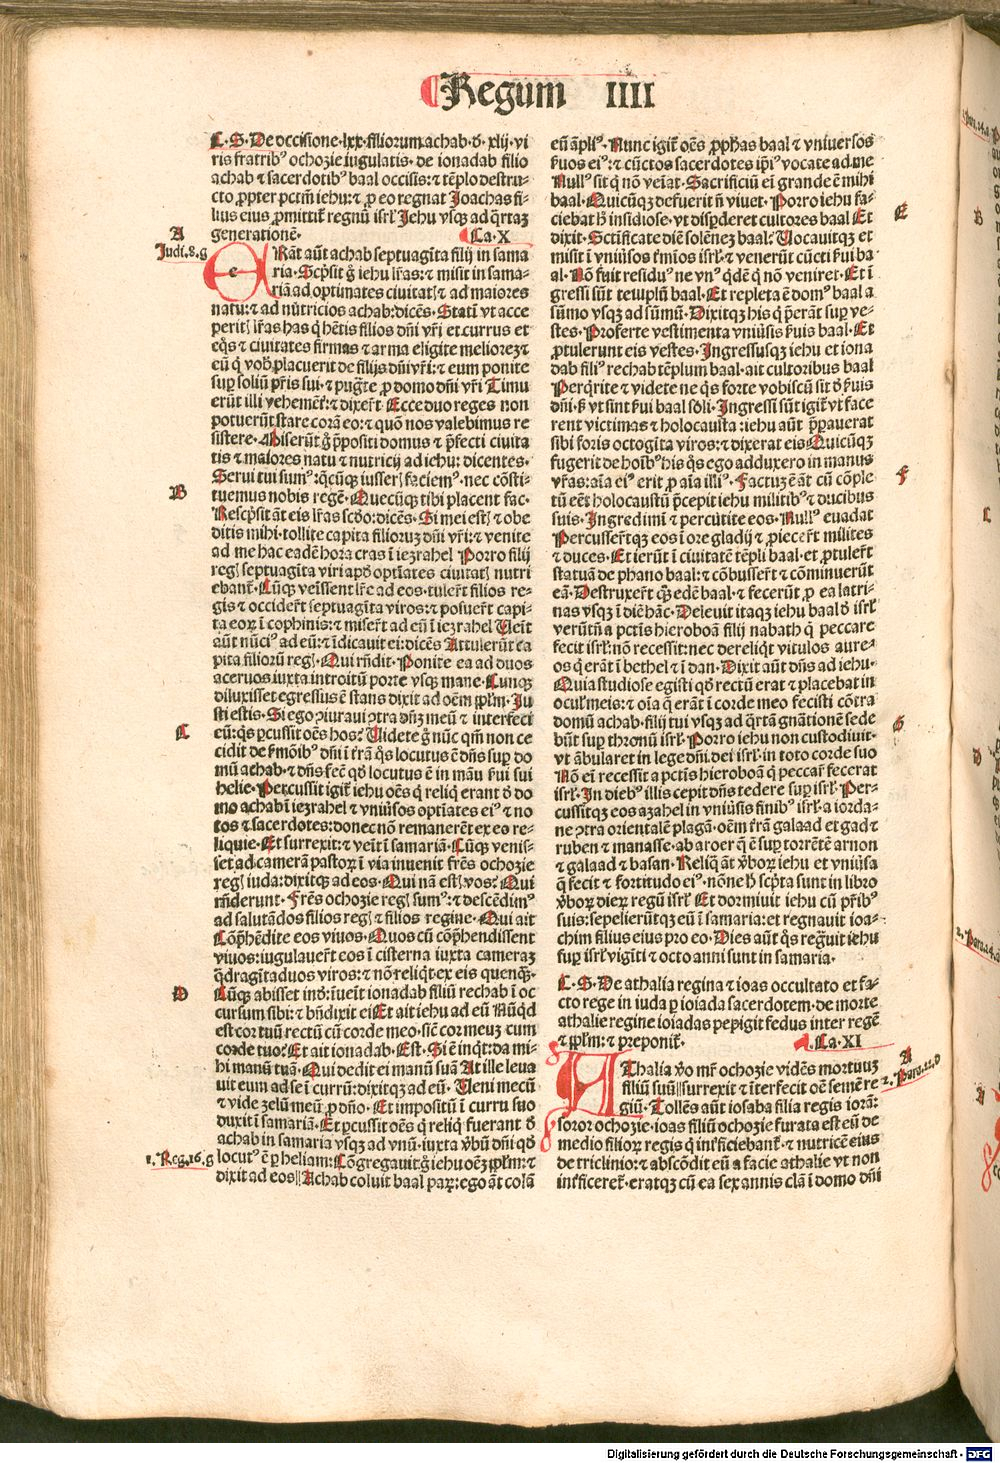 Regum IIII
C. S. De occisione .lxx. filiorum achab. ⁊ đ .xlij. vi
ris fratribꝰ ochozie iugulatis. de ionadab filio
achab ⁊ sacerdotibꝰ baal occisis: ⁊ tēplo destru⸗
cto ꝓpter pctm̄ iehu: ⁊ ꝓ eo regnat Joachas fi⸗
lius eius ꝓmittit᷑ regnū isrl̄ Jehu vsqꝫ ad q̄rtaꝫ
generationē.
Ca. X
A
Judi. 8. g
ERāt aūt achab septuagīta filij in sama
ria. Scp̄sit ḡ iehu lr̄as: ⁊ misit in sama⸗
riā ad optimates ciuitatꝭ ⁊ ad maiores
natu: ⁊ ad nutricios achab: dicēs. Statī vt acce
peritꝭ lr̄as has q̄ hētis filios dn̄i vr̄i et currus et
eq̄s ⁊ ciuitates firmas ⁊ arma eligite meliorez ⁊
eū q̄ vob̄ placuerit de filijs dn̄i vr̄i: ⁊ eum ponite
suꝑ soliū pr̄is sui. ⁊ pug̃te ꝓ domo dn̄i vr̄i Timu
erūt illi vehemēt᷑: ⁊ dixer̄t. Ecce duo reges non
potuerūt stare corā eo: ⁊ quō nos valebimus re
sistere. Miserūt ḡ p̄positi domus ⁊ p̄fecti ciuita
tis ⁊ maiores natu ⁊ nutricij ad iehu: dicentes.
Serui tui sumꝰ: q̄cūqꝫ iusserꝭ faciemꝰ. nec cōsti⸗
B
tuemus nobis regē. Quecūqꝫ tibi placent fac.
Rescp̄sit āt eis lr̄as scđo: dicēs. Si mei estꝭ ⁊ obe
ditis mihi. tollite capita filioruꝫ dn̄i vr̄i: ⁊ venite
ad me hac eadē hora cras ī iezrahel Porro filij
regꝭ septuagīta viri apđ optīates ciuitatꝭ nutri
ebant᷑. Cūqꝫ veīssent lr̄e ad eos. tuler̄t filios re⸗
gis ⁊ occider̄t septuagīta viros: ⁊ posuer̄t capi⸗
ta eoꝝ ī cophinis: ⁊ miser̄t ad eū ī iezrahel Ueīt
aūt nūciꝰ ad eū: ⁊ īdicauit ei: dicēs Attulerūt ca
pita filiorū regꝭ. Qui rn̄dit. Ponite ea ad duos
aceruos iuxta introitū porte vsqꝫ mane. Cunqꝫ
diluxisset egressus ē stans dixit ad oēm pp̄lm. Ju
sti estis. Si ego ꝯiuraui ꝯtra dn̄ꝫ meū ⁊ interfeci
C
eū: q̄s ꝑcussit oēs hos: Uidete ḡ nūc qm̄ non ce
cidit de s̄mōibꝰ dn̄i ī tr̄ā q̄s locutus ē dn̄s suꝑ do
mū achab. ⁊ dn̄s fecē qđ locutus ē in māu s̄ui sui
helie. Percussit igit᷑ iehu oēs q̄ reliq̄ erant đ do
mo achab ī iezrahel ⁊ vniūsos optīates eiꝰ ⁊ no
tos ⁊ sacerdotes: donec nō remanerēt ex eo re⸗
liquie. Et surrexit: ⁊ veīt ī samariā. Cūqꝫ venis⸗
set ad camerā pastoꝝ ī via inuenit fr̄es ochozie
regꝭ iuda: dixitqꝫ ad eos. Qui nā estꝭ vos: Qui
rn̄derunt. Fr̄es ochozie regꝭ sumꝰ: ⁊ descēdimꝰ
ad salutādos filios regꝭ ⁊ filios regine. Qui ait
Cōp̄hēdite eos viuos. Quos cū cōp̄hendissent
viuos: iugulauer̄t eos ī cisterna iuxta cameraꝫ
q̄dragīta duos viros: ⁊ nō reliq̄t ex eis quenqꝫ.
D
Cūqꝫ abisset inđ: īueīt ionadab filiū rechab ī oc
cursum sibi: ⁊ bn̄dixit ei Et ait iehu ad eū Nūqđ
est cor tuū rectū cū corde meo. sic̄ cor meuꝫ cum
corde tuo: Et ait ionadab. Est. Si ē inq̄t: da mi⸗
hi manū tuā. Qui dedit ei manū suā At ille leua
uit eum ad se ī currū: dixitqꝫ ad eū. Ueni mecū
⁊ vide zelū meū ꝓ dn̄o. Et impositū ī curru suo
duxit ī samariā. Et ꝑcussit oēs q̄ reliq̄ fuerant đ
achab in samaria vsqꝫ ad vnū. iuxta v̄bū dn̄i qđ
1. Reg. 16. g
locutꝰ ē ꝑ heliam: Cōgregauit ḡ iehu oēꝫ pp̄lm: ⁊
dixit ad eos Achab coluit baal paꝝ: ego āt colā
eū āpliꝰ. Nunc igit᷑ oēs ꝓph̄as baal ⁊ vniuersos
s̄uos eiꝰ: ⁊ cūctos sacerdotes ip̄iꝰ vocate ad me
Nullꝰ sit q̄ nō veīat. Sacrificiū ei grande ē mihi
baal. Quicūqꝫ defuerit n̄ viuet. Porro iehu fa⸗
E
ciebat h̄ insidiose. vt disꝑderet cultores baal Et
dixit. Sctīficate diē solēneꝫ baal: Uocauitqꝫ et
misit ī vniūsos t̄mīos isrl̄. ⁊ venerūt cūcti s̄ui ba
al. Nō fuit residuꝰ ne vnꝰ q̄dē q̄ nō veniret. Et ī
gressi sūt teꝫplū baal. Et repleta ē domꝰ baal a
sūmo vsqꝫ ad sūmū. Dixitqꝫ his q̄ p̄erāt suꝑ ve⸗
stes. Proferte vestimenta vniūsis s̄uis baal. Et
ꝓtulerunt eis vestes. Ingressusqꝫ iehu et iona
dab filiꝰ rechab tēplum baal. ait cultoribus baal
Perq̄rite ⁊ videte ne q̄s forte vobiscū sit đ s̄uis
dn̄i. s̄ vt sint s̄ui baal soli. Ingressi sūt igit᷑ vt face
rent victimas ⁊ holocausta: iehu aūt p̄ꝑauerat
sibi foris octogīta viros: ⁊ dixerat eis Quicūqꝫ
fugerit de hoībꝰ his q̄s ego adduxero in manus
F
vr̄as: aīa eiꝰ erit ꝓ aīa illiꝰ. Factuꝫ ē āt cū cōple
tū eēt holocaustū p̄cepit iehu militibꝰ ⁊ ducibus
suis. Ingredimī ⁊ percutite eos. Nullꝰ euadat
Percusser̄tqꝫ eos ī ore gladij ⁊ ꝓiecer̄t milites
⁊ duces. Et ierūt ī ciuitatē tēpli baal. et ꝓtuler̄t
statuā de phano baal: ⁊ cōbusser̄t ⁊ cōminuerūt
eā. Destruxer̄t qꝫ edē baal. ⁊ fecerūt ꝓ ea latri⸗
nas vsqꝫ ī diē hāc. Deleuit itaqꝫ iehu baal đ isrl̄
verūtn̄ a pctīs hieroboā filij nabath q̄ peccare
fecit isrl̄. nō recessit: nec dereliq̄t vitulos aure⸗
os q̄ erāt ī bethel ⁊ ī dan. Dixit aūt dn̄s ad iehu.
Quia studiose egisti qđ rectū erat ⁊ placebat in
ocul̄ meis: ⁊ oīa q̄ erāt ī corde meo fecisti cōtra
G
domū achab. filij tui vsqꝫ ad q̄rtā gn̄ationē sede
būt suꝑ thronū isrl̄. Porro iehu non custodiuit.
vt ābularet in lege dn̄i. dei isrl̄. in toto corde suo
Nō ei recessit a pctīs hieroboā q̄ peccar̄ fecerat
isrl̄. In diebꝰ illis cepit dn̄s tedere suꝑ isrl̄. Per⸗
cussitqꝫ eos azahel in vniūsis finibꝰ isrl̄. a iorda⸗
ne ꝯtra orientalē plagā. oēm tr̄ā galaad et gad ⁊
ruben ⁊ manasse. ab aroer q̄ ē suꝑ torrētē arnon
⁊ galaad ⁊ basan. Reliq̄ āt v̄boꝝ iehu et vniūsa
q̄ fecit ⁊ fortitudo eiꝰ. nōne h̄ scp̄ta sunt in libro
v̄boꝝ dieꝝ regū isrl̄. Et dormiuit iehu cū pr̄ibꝰ
suis: sepelierūtqꝫ eū ī samaria: et regnauit ioa⸗
chim filius eius pro eo. Dies aūt q̄s regnauit iehu
suꝑ isrl̄ vigīti ⁊ octo anni sunt in samaria.
C. S. De athalia regina ⁊ ioas occultato et fa⸗
cto rege in iuda ꝑ ioiada sacerdotem. de morte
athalie regine ioiadas pepigit fedus inter regē
⁊ pp̄lm: ⁊ preponit᷑.
Ca. XI
A
2. Para. 22. d
AThalia v̄o mr̄ ochozie vidēs mortuuꝫ
filiū suū surrexit ⁊ īterfecit oē semē re
giū. Tollēs aūt iosaba filia regis iorā:
soror ochozie. ioas filiū ochozie furata est eū de
medio filioꝝ regis q̄ int̄ficiebant᷑. ⁊ nutricē eius
de triclinio: ⁊ abscōdit eū a facie athalie vt non
int̄ficeret᷑. eratqꝫ cū ea sex annis clā ī domo dn̄i
Digitalisierung gefördert durch die Deutsche Forschungsgemeinschaft - DFG